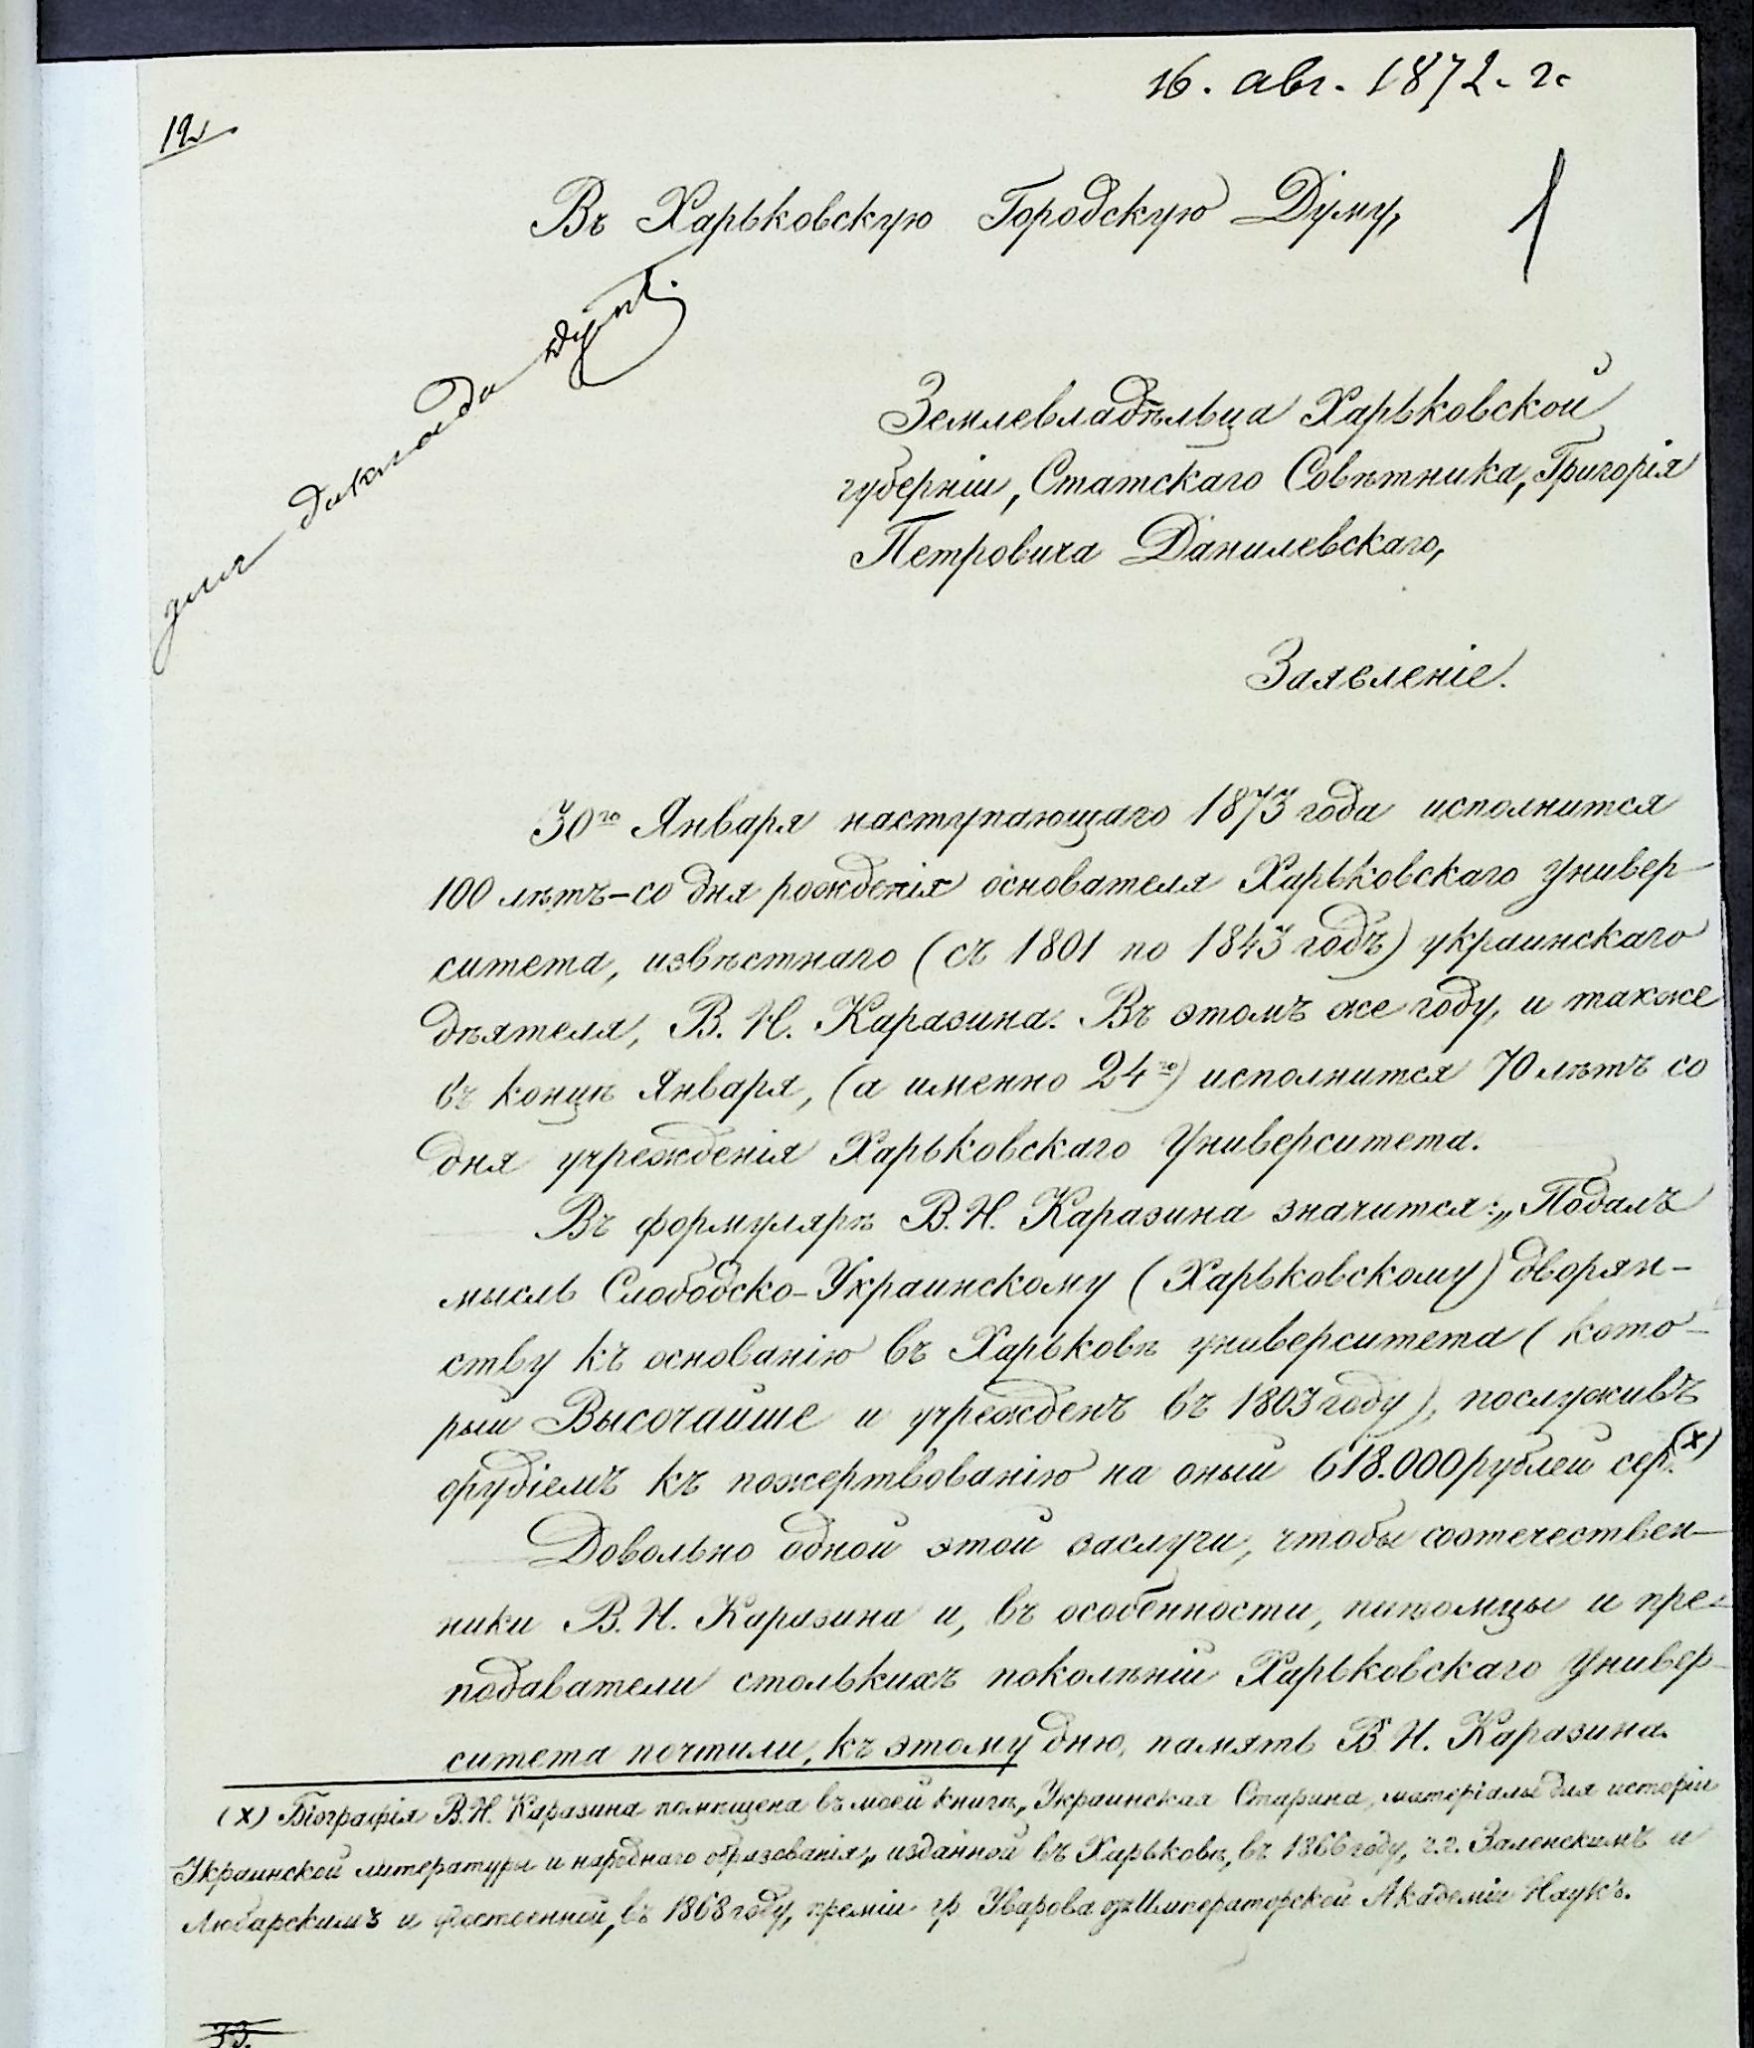 16. авг. 1872. г.
12
Въ Харьковскую Городскую Думу,
1
для доклада думѣ.
Землевладѣльца Харьковской
губерніи, Статскаго Совѣтника, Григорія
Петровича Данилевскаго,
Заявленіе.
30го Января наступающаго 1873 года исполнится
100 лѣтъ – со дня рожденія основателя Харьковскаго Универ-
ситета, извѣстнаго (съ 1801 по 1843 годъ) украинскаго
дѣятеля, В. Н. Каразина. Въ этомъ же году, и также
въ концѣ Января, (а именно 24го) исполнится 70 лѣтъ со
дня учрежденія Харьковскаго Университета.
Въ формулярѣ В. Н. Каразина значится: „Подалъ
мысль Слободско-Украинскому (Харьковскому) дворян-
ству къ основанію въ Харьковѣ университета (кото-
рый Высочайше и учрежденъ въ 1803 году), послуживъ
орудіемъ къ пожертвованію на оный 618.000 рублей сер. (х)
Довольно одной этой заслуги, чтобы соотечествен-
ники В. Н. Каразина и, въ особенности, питомцы и пре-
подаватели столькихъ поколѣній Харьковскаго Универ-
ситета почтили, къ этому дню, память В. Н. Каразина.
(х) Біографія В. Н. Каразина помѣщена въ моей книгѣ „Украинская Старина, матеріалы для исторіи
Украинской литературы и народнаго образованія„ изданной въ Харьковѣ, въ 1866 году, г.г. Заленскимъ и
Любарскимъ и удостоенной, въ 1868 году, преміи гр. Уварова отъ Императорской Академіи Наукъ.
33.